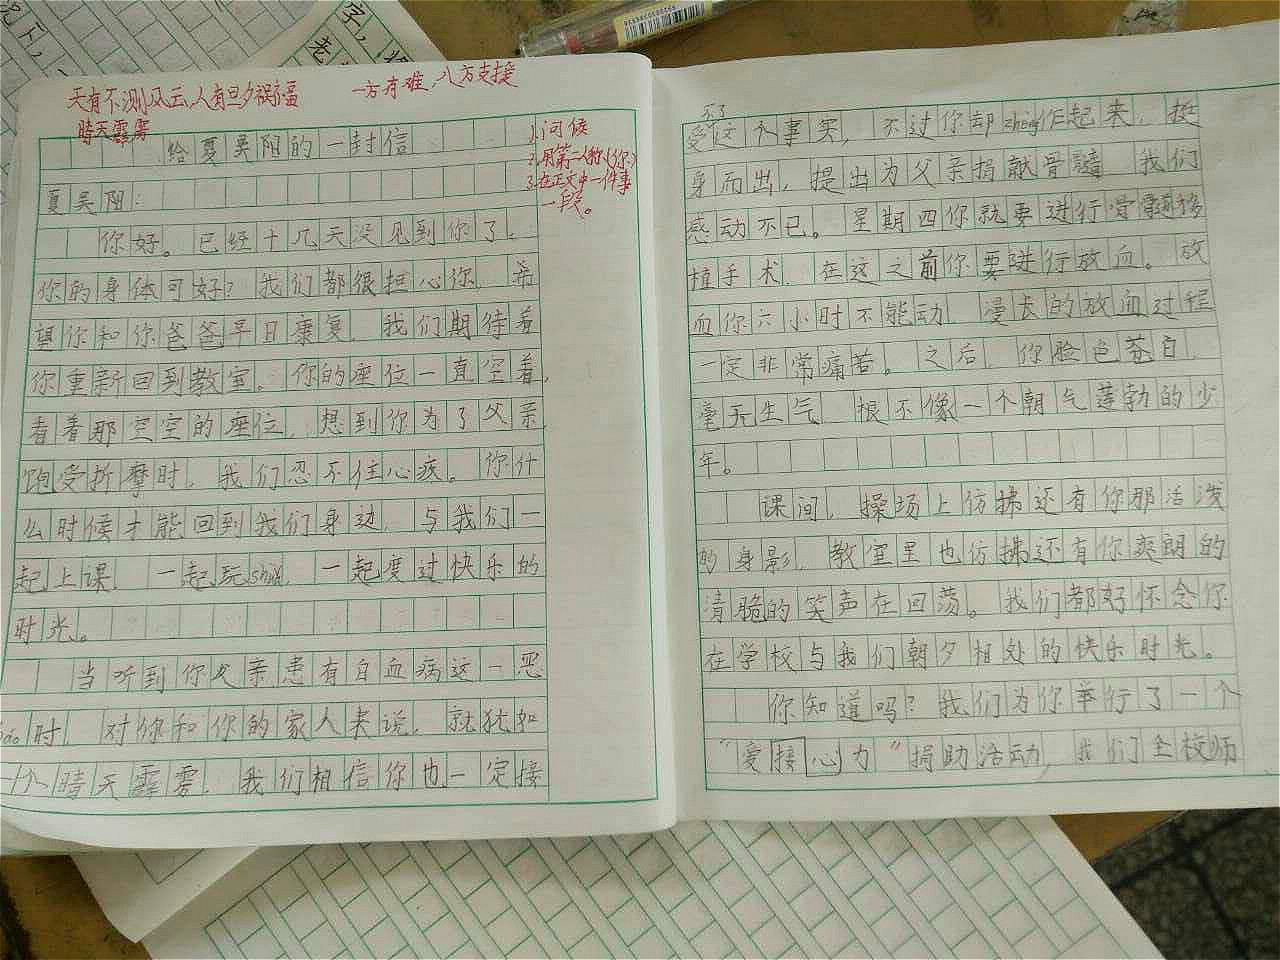 天有不测风云,人有旦夕祸福
一方有难,八方支援
晴天霹雳
给夏昊阳的一封信
1.问候
2.用第二人称(你)
3.在正文中一件事
一段。
夏昊阳:
你好。已经十几天没见到你了。
你的身体可好?我们都很担心你,希
望你和你爸爸早日康复,我们期待着
你重新回到教室。你的座位一直空着,
看着那空空的座位,想到你为了父亲
饱受折摩时,我们忍不住心疾。你什
么时候才能回到我们身边,与我们一
起上课,一起玩shuǎ,一起度过快乐的
时光。
当听到你父亲患有白血病这一恶
时,对你和你的家人来说,就犹如
一个晴天霹雳,我们相信你也一定接
受这个事实,不过你却zhèn作起来,挺
身而出,提出为父亲捐献骨髓,我们
感动不已。星期四你就要进行骨髓移
植手术,在这之前你要进行放血。放
血你六小时不能动,漫长的放血过程
一定非常痛苦。之后,你脸色苍白,
毫无生气,根不像一个朝气蓬勃的少
年。
课间,操场上仿拂还有你那活泼
的身影,教室里也仿拂还有你爽朗的
清脆的笑声在回荡。我们都好怀念你
在学校与我们朝夕相处的快乐时光。
你知道吗?我们为你举行了一个
“爱接心力”捐助活动,我们全校师